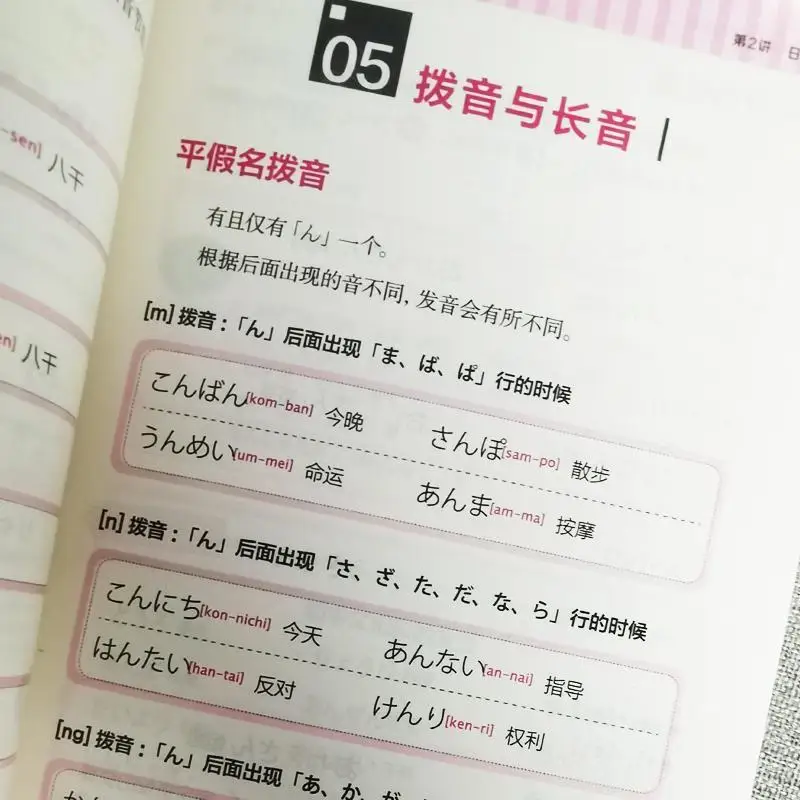 -sen] 八千
en] 八千
第2讲 日
05 拨音与长音
平假名拨音
有且仅有「ん」一个。
根据后面出现的音不同,发音会有所不同。
[m] 拨音:「ん」后面出现「ま、ば、ぱ」行的时候
こんばん[kom-ban] 今晚 さんぽ[sam-po] 散步
うんめい[um-mei] 命运 あんま[am-ma] 按摩
[n] 拨音:「ん」后面出现「さ、ざ、た、だ、な、ら」行的时候
こんにち[kon-nichi] 今天 あんない[an-nai] 指导
はんたい[han-tai] 反对 けんり[ken-ri] 权利
[ng] 拨音:「ん」后面出现「あ、か、が、